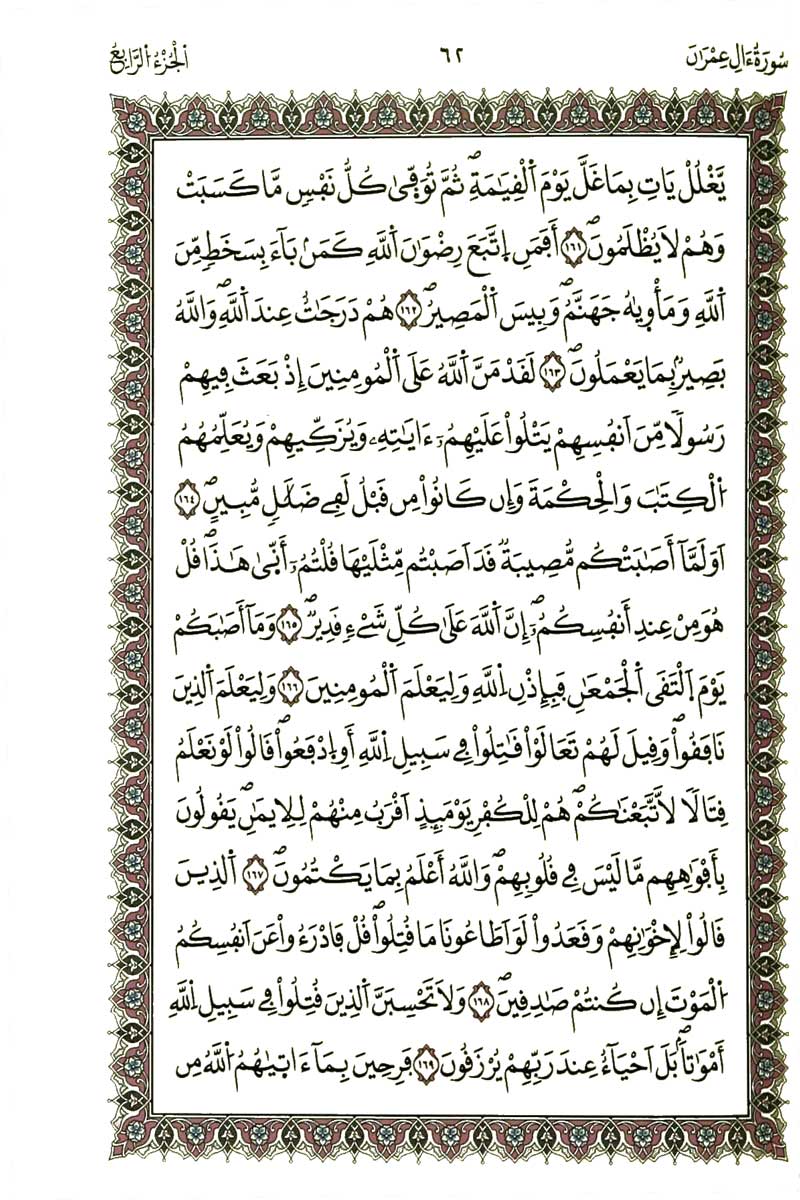 سُورَةُ ءَالِ عِمْرَٰنَ
٦٢
اَلْجُزْءُ اَلرَّابِعُ
يَّغْلُلْ يَاتِ بِمَا غَلَّ يَوْمَ اَلْقِيَٰمَةِۖ ثُمَّ تُوَفّ۪ىٰ كُلُّ نَفْسٖ مَّا كَسَبَتْ
وَهُمْ لَا يُظْلَمُونَۖ ١٦١ أَفَمَنِ اِ۪تَّبَعَ رِضْوَٰنَ اَللَّهِ كَمَنۢ بَآءَ بِسَخَطٖ مِّنَ
اَللَّهِ وَمَأْو۪يٰهُ جَهَنَّمُۖ وَبِيسَ اَلْمَصِيرُۖ ١٦٢ هُمْ دَرَجَٰتٌ عِندَ اَللَّهِۖ وَاللَّهُ
بَصِيرُۢ بِمَا يَعْمَلُونَۖ ١٦٣ لَقَدْ مَنَّ اَللَّهُ عَلَى اَلْمُومِنِينَ إِذْ بَعَثَ فِيهِمْ
رَسُولاٗ مِّنَ اَنفُسِهِمْ يَتْلُواْ عَلَيْهِمُۥٓ ءَايَٰتِهِۦ وَيُزَكِّيهِمْ وَيُعَلِّمُهُمُ
اُلْكِتَٰبَ وَالْحِكْمَةَ وَإِن كَانُواْ مِن قَبْلُ لَفِے ضَلَٰلٖ مُّبِينٍۖ ١٦٤
اَوَلَمَّآ أَصَٰبَتْكُم مُّصِيبَةٞ قَدَ اَصَبْتُم مِّثْلَيْهَا قُلْتُمُۥٓ أَنّ۪ىٰ هَٰذَاۖ قُلْ
هُوَ مِنْ عِندِ أَنفُسِكُمُۥٓۖ إِنَّ اَللَّهَ عَلَىٰ كُلِّ شَےْءٖ قَدِيرٞۖ ١٦٥ وَمَآ أَصَٰبَكُمْ
يَوْمَ اَلْتَقَى اَلْجَمْعَٰنِ فَبِإِذْنِ اِللَّهِ وَلِيَعْلَمَ اَلْمُومِنِينَ ١٦٦ وَلِيَعْلَمَ اَلذِينَ
نَافَقُواْۖ وَقِيلَ لَهُمْ تَعَالَوْاْ قَٰتِلُواْ فِے سَبِيلِ اِللَّهِ أَوِ اِ۪دْفَعُواْۖ قَالُواْ لَوْ نَعْلَمُ
قِتَالاٗ لَّاتَّبَعْنَٰكُمْۖ هُمْ لِلْكُفْرِ يَوْمَئِذٍ اَقْرَبُ مِنْهُمْ لِلِايمَٰنِۖ يَقُولُونَ
بِأَفْوَٰهِهِم مَّا لَيْسَ فِے قُلُوبِهِمْۖ وَاللَّهُ أَعْلَمُ بِمَا يَكْتُمُونَۖ ١٦٧ اَلذِينَ
قَالُواْ لِإِخْوَٰنِهِمْ وَقَعَدُواْ لَوَ اَطَاعُونَا مَا قُتِلُواْۖ قُلْ فَادْرَءُواْ عَنَ اَنفُسِكُمُ
اُلْمَوْتَ إِن كُنتُمْ صَٰدِقِينَۖ ١٦٨ وَلَا تَحْسِبَنَّ اَلذِينَ قُتِلُواْ فِے سَبِيلِ اِللَّهِ
أَمْوَٰتاَۢۖ بَلَ اَحْيَآءٌ عِندَ رَبِّهِمْ يُرْزَقُونَ ١٦٩ فَرِحِينَ بِمَآ ءَات۪يٰهُمُ اُللَّهُ مِن